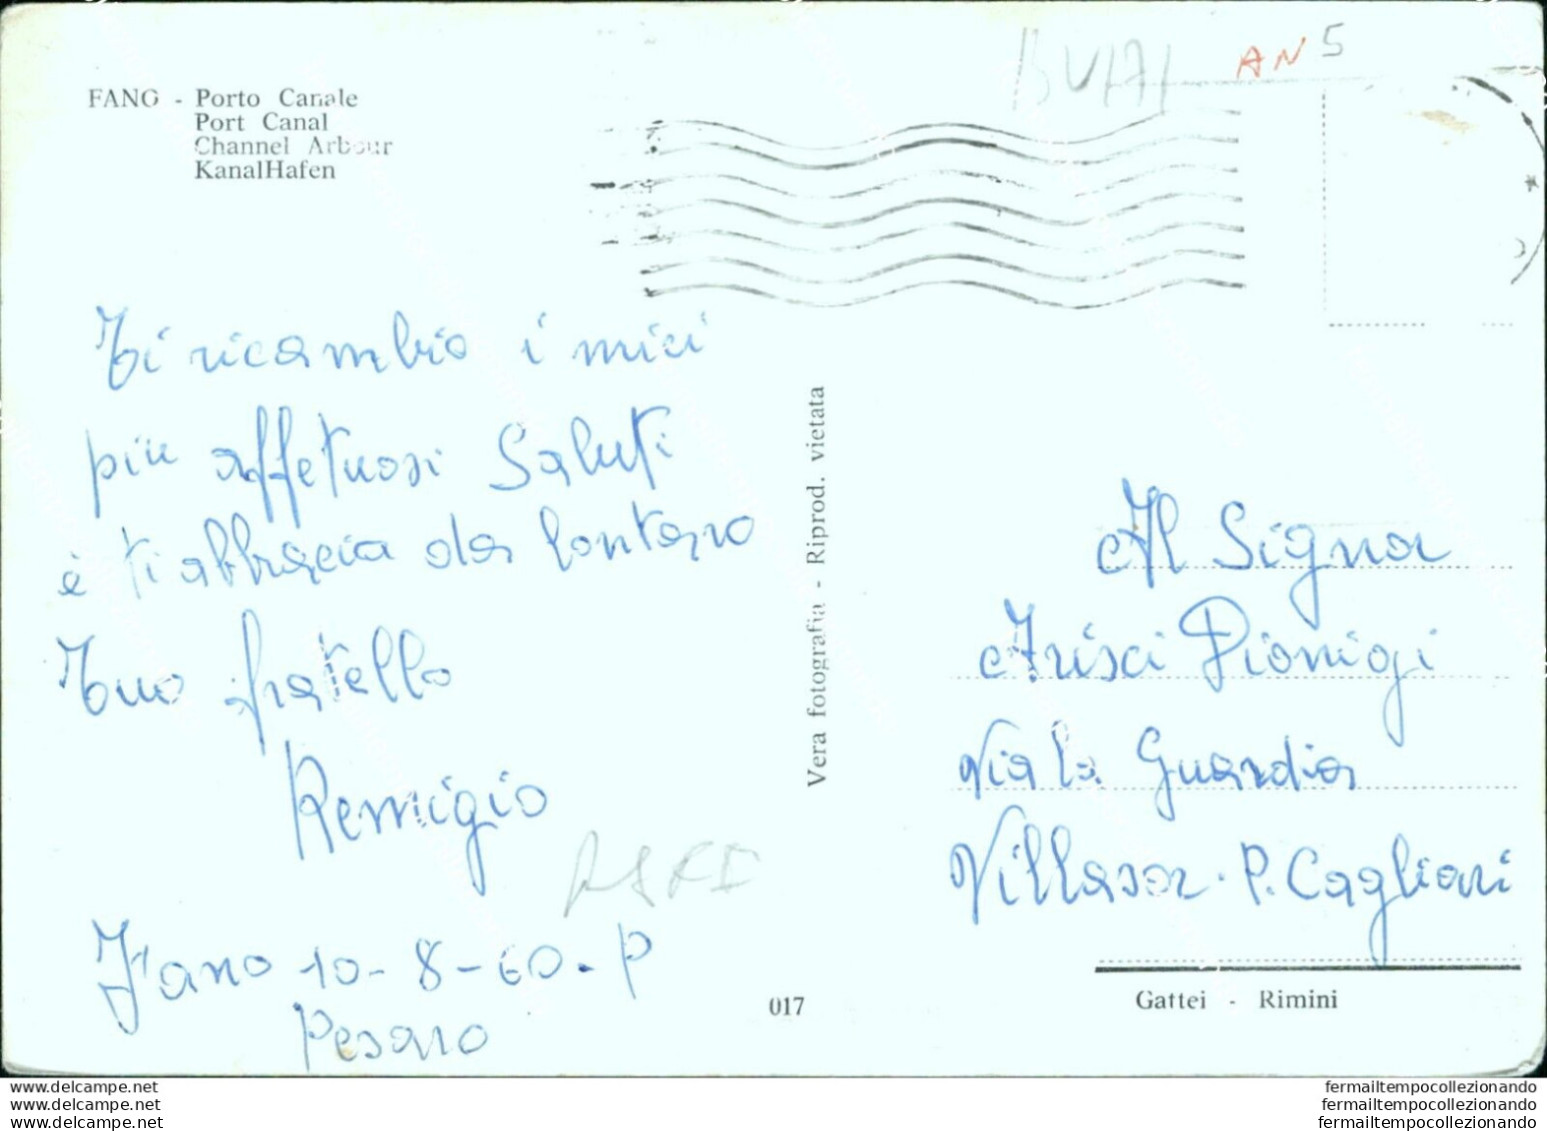 AN 5
FANO - Porto Canale
Port Canal
Channel Arbour
KanalHafen
Ti ricambio i miei
più affetuosi Saluti
e ti abbracia da lontano
Tuo fratello
Remigio
Fano 10-8-60. P
Pesaro
017
Vera fotografia - Riprod. vietata
Al Signor
Arisci Dionigi
Via la Guardia
Villasor. P. Cagliari
Gattei - Rimini
www.delcampe.net
www.delcampe.net
www.delcampe.net
fermailtempocollezionando
fermailtempocollezionando
fermailtempocollezionando